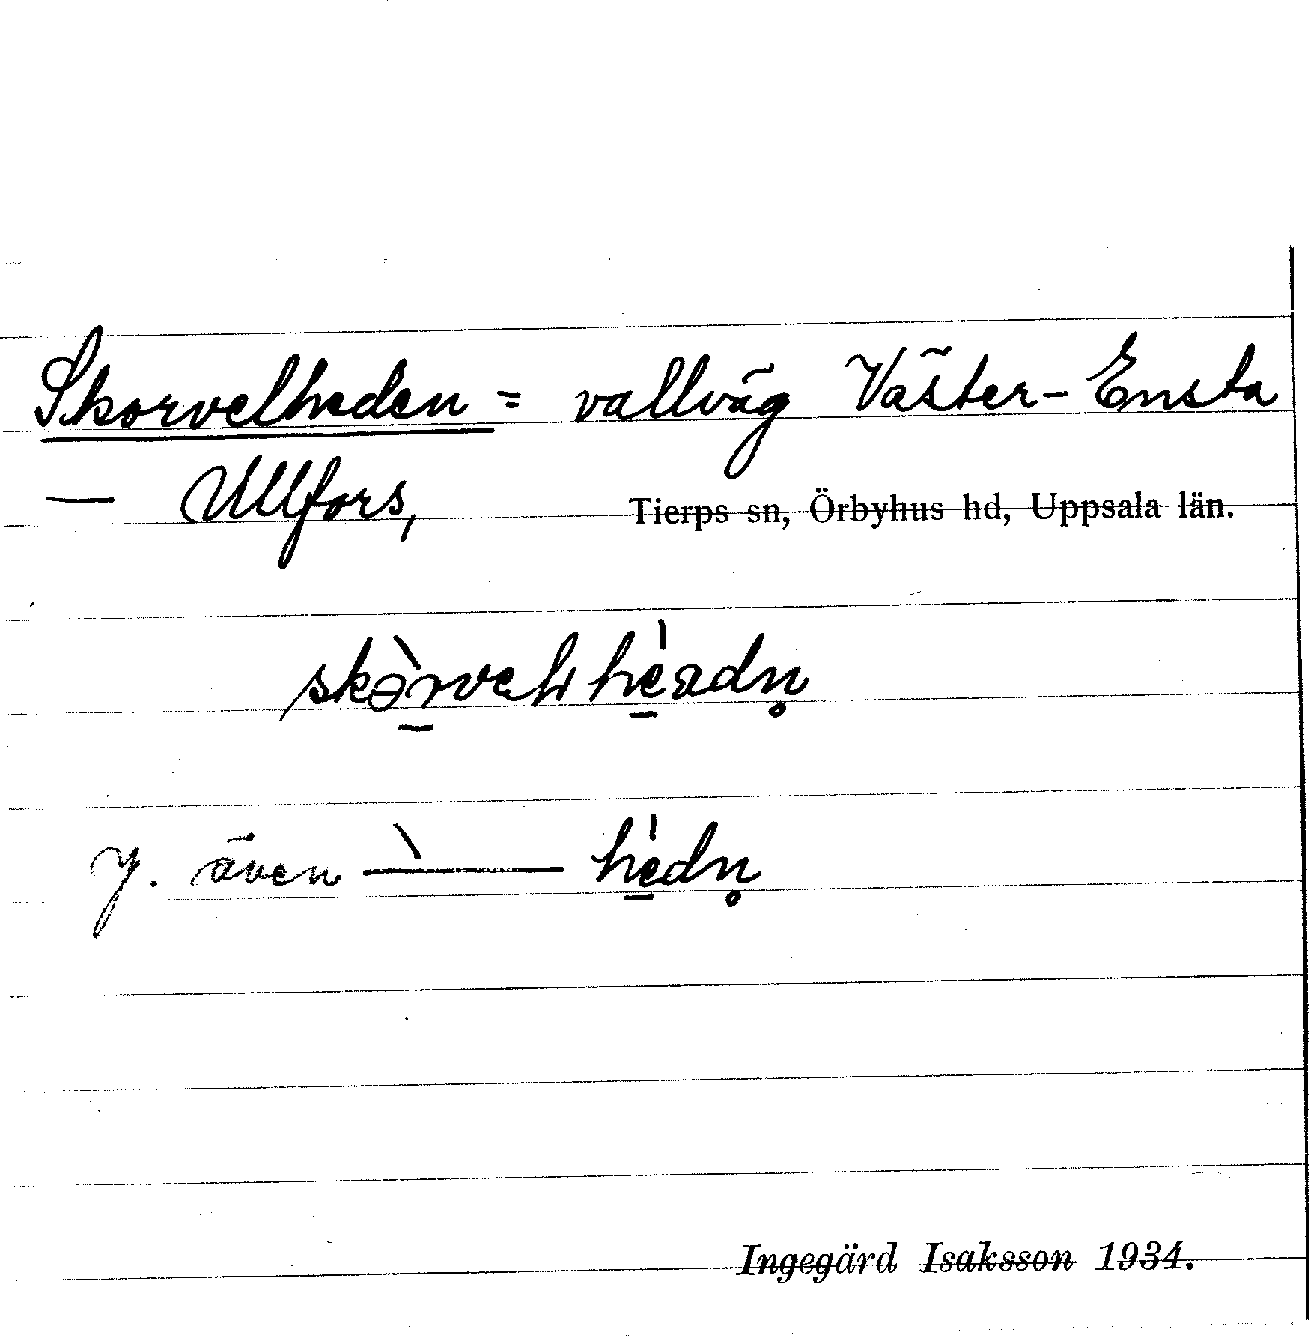 Skorvelheden = vallväg Väster-Ensta
— Ullfors,
Tierps sn, Örbyhus hd, Uppsala län.
y. även — hèdn̥
Ingegärd Isaksson 1934.